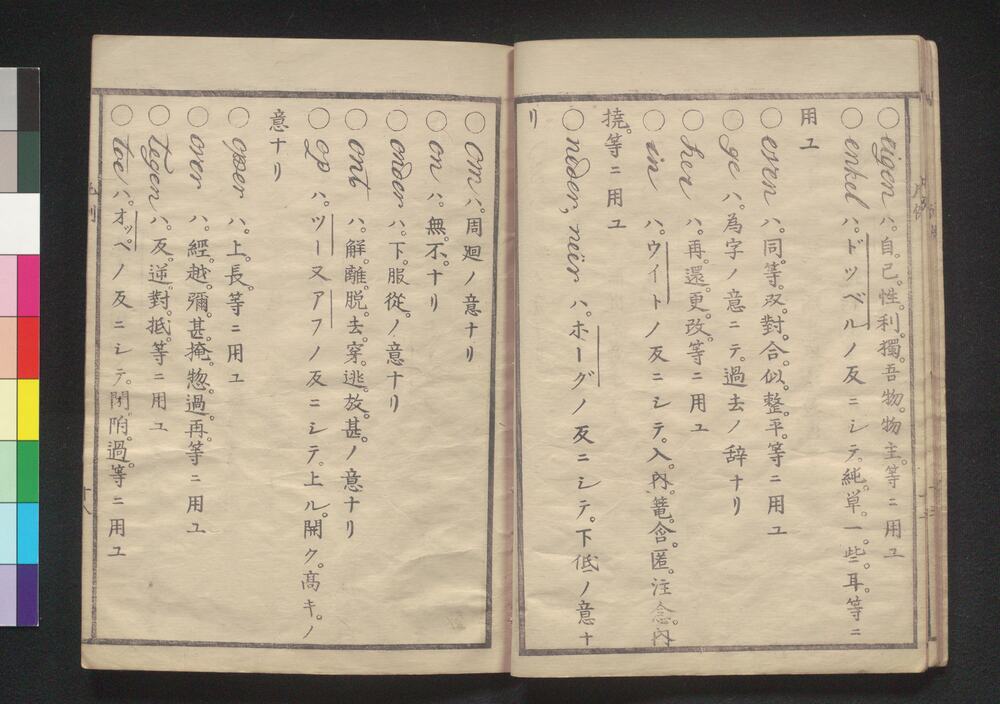 ○eigen ハ。自。己。性。利。獨。吾物。物主。等ニ用ユ
○enkel ハ。ドツベルノ反ニシテ。純。単。一。些。耳。等ニ
用ユ
○even ハ。同。等。双。對。合。似。整。平。等ニ用ユ
○ge ハ。為字ノ意ニテ。過去ノ辞ナリ
○her ハ。再。還。更。改。等ニ用ユ
○in ハ。ウイトノ反ニシテ。入。内。篭。含。匿。注念。内
撓。等ニ用ユ
○neder, neêr ハ。ホーグノ反ニシテ。下低ノ意ナ
リ
○om ハ。周廻ノ意ナリ
○on ハ。無。不。ナリ
○onder ハ。下。服從。ノ意ナリ
○ont ハ。解。離。脱。去。穿。逃。放。甚。ノ意ナリ
○op ハ。ツー又アフノ反ニシテ。上ル。開ク。高キ。ノ
意ナリ
○opper ハ。上。長。等ニ用ユ
○over ハ。經。越。彌。甚。掩。惣。過。再。等ニ用ユ
○tegen ハ。反。逆。對。抵。等ニ用ユ
○toe ハ。オッペノ反ニシテ。閉。附。過。等ニ用ユ